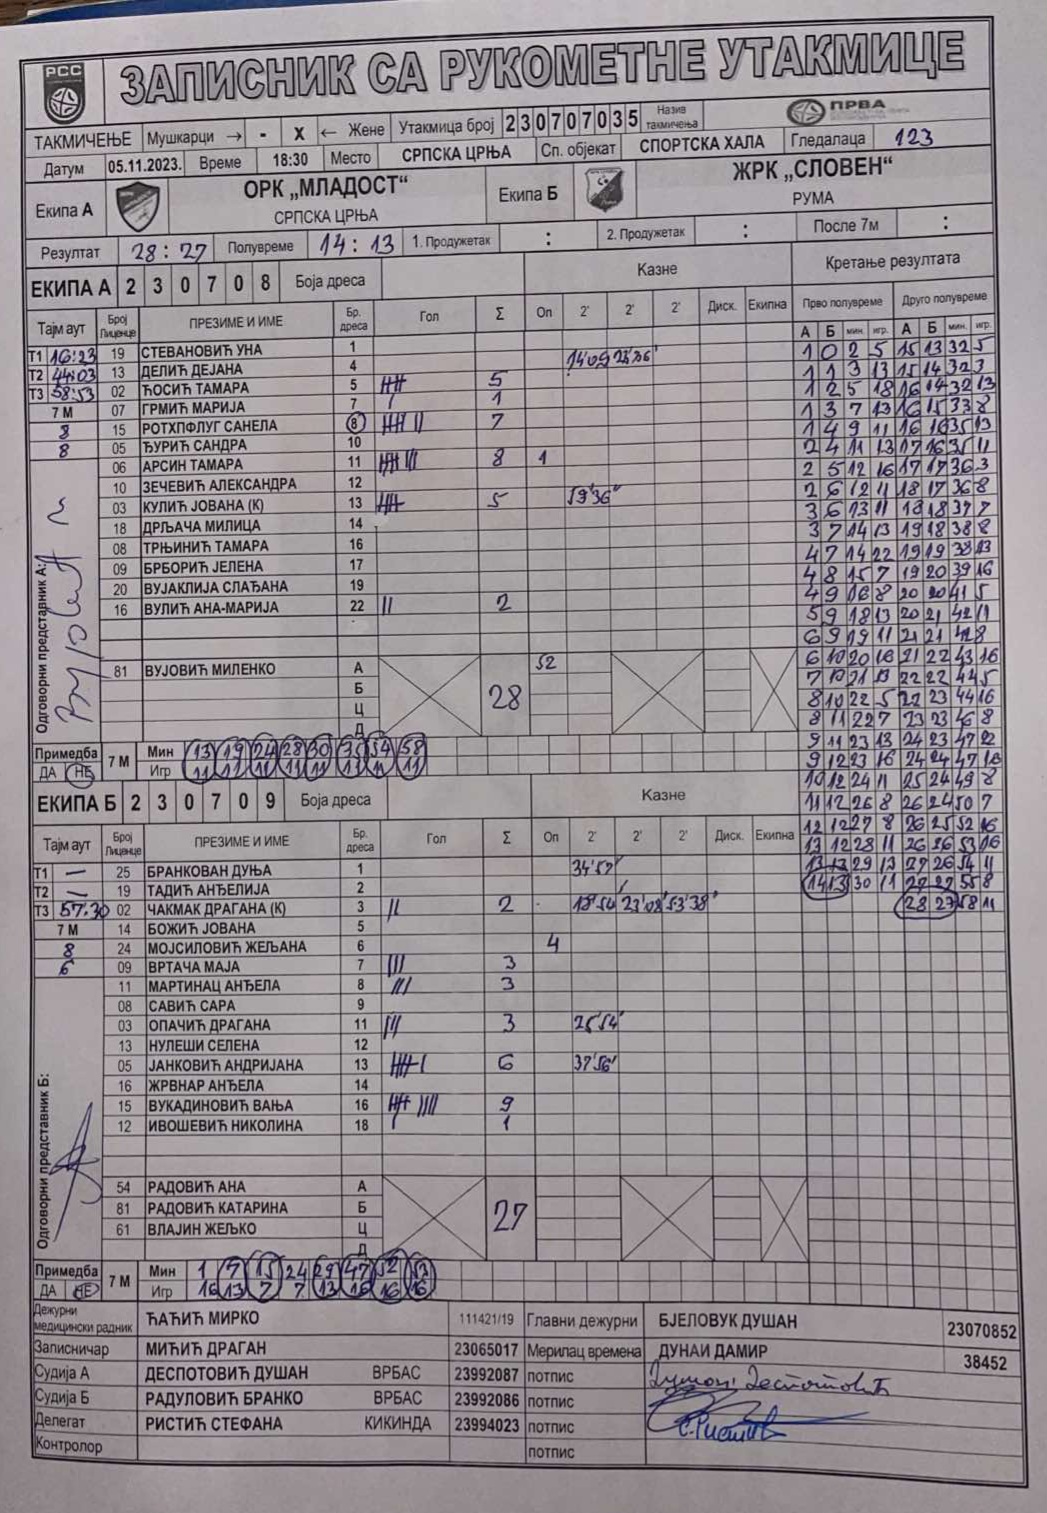 РСС
ЗАПИСНИК СА РУКОМЕТНЕ УТАКМИЦЕ
ТАКМИЧЕЊЕ Мушкарци → - X ← Жене Утакмица број 230707035 Назив такмичења ПРВА
Датум 05.11.2023. Време 18:30 Место СРПСКА ЦРЊА Сп. објекат СПОРТСКА ХАЛА Гледалаца 123
Екипа А ОРК „МЛАДОСТ“ СРПСКА ЦРЊА Екипа Б ЖРК „СЛОВЕН“ РУМА
Резултат 28:27 Полувреме 14:13 1. Продужетак : 2. Продужетак : После 7м :
ЕКИПА А 2 3 0 7 0 8 Боја дреса Казне Кретање резултата
Тајм аут Број Лиценце ПРЕЗИМЕ И ИМЕ Бр. дреса Гол Σ Оп 2' 2' 2' Диск. Екипна Прво полувреме Друго полувреме
А Б мин. игр. А Б мин. игр.
T1 16:23 19 СТЕВАНОВИЋ УНА 1
T2 44:03 13 ДЕЛИЋ ДЕЈАНА 4
T3 58:53 02 ЋОСИЋ ТАМАРА 5 5
7 М 07 ГРМИЋ МАРИЈА 7 1
8 15 РОТХПФЛУГ САНЕЛА 8 7
8 05 ЂУРИЋ САНДРА 10
06 АРСИН ТАМАРА 11 8 1
10 ЗЕЧЕВИЋ АЛЕКСАНДРА 12
03 КУЛИЋ ЈОВАНА (К) 13 5 59'36"
18 ДРЉАЧА МИЛИЦА 14
08 ТРЊИНИЋ ТАМАРА 16
09 БРБОРИЋ ЈЕЛЕНА 17
20 ВУЈАКЛИЈА СЛАЂАНА 19
16 ВУЛИЋ АНА-МАРИЈА 22 2
81 ВУЈОВИЋ МИЛЕНКО А 52
Б
28
Ц
Д
Одговорни представник А:
Примедба ДА НЕ 7 М Мин 13 19 24 28 30 35 54 58
Игр 11 11 11 11 11 13 11 11
1 0 2 5 15 13 32 5
1 1 3 13 15 14 32 3
1 2 5 18 16 14 32 13
1 3 7 13 16 15 33 8
1 4 9 11 16 16 35 13
2 4 11 13 17 16 35 11
2 5 12 16 17 17 36 3
2 6 12 11 18 17 36 8
3 6 13 11 18 18 37 7
3 7 14 13 19 18 38 8
4 7 14 22 19 19 38 13
4 8 15 7 19 20 39 16
4 9 16 8 20 20 41 5
5 9 18 13 20 21 42 11
6 9 19 11 21 21 42 8
6 10 20 16 21 22 43 16
7 10 21 13 22 22 44 5
8 10 22 5 22 23 44 16
8 11 22 7 23 23 46 8
9 11 23 13 24 23 47 22
9 12 23 16 24 24 47 16
10 12 24 11 25 24 49 8
11 12 26 8 26 24 50 7
12 12 27 8 26 25 52 16
13 12 28 11 26 26 53 16
13 13 29 13 27 26 54 11
14 13 30 11 27 27 55 8
28 27 58 11
ЕКИПА Б 2 3 0 7 0 9 Боја дреса Казне
Тајм аут Број Лиценце ПРЕЗИМЕ И ИМЕ Бр. дреса Гол Σ Оп 2' 2' 2' Диск. Екипна
T1 — 25 БРАНКОВАН ДУЊА 1 34'57"
T2 — 19 ТАДИЋ АНЂЕЛИЈА 2
T3 57:30 02 ЧАКМАК ДРАГАНА (К) 3 2 18'54 23'02" 53'38"
7 М 14 БОЖИЋ ЈОВАНА 5
8 24 МОЈСИЛОВИЋ ЖЕЉАНА 6 4
6 09 ВРТАЧА МАЈА 7 3
11 МАРТИНАЦ АНЂЕЛА 8 3
08 САВИЋ САРА 9
03 ОПАЧИЋ ДРАГАНА 11 3 25'54"
13 НУЛЕШИ СЕЛЕНА 12
05 ЈАНКОВИЋ АНДРИЈАНА 13 6 37'56"
16 ЖРВНАР АНЂЕЛА 14
15 ВУКАДИНОВИЋ ВАЊА 16 9
12 ИВОШЕВИЋ НИКОЛИНА 18 1
54 РАДОВИЋ АНА А
81 РАДОВИЋ КАТАРИНА Б
27
61 ВЛАЈИН ЖЕЉКО Ц
Д
Одговорни представник Б:
Примедба ДА НЕ 7 М Мин 1 7 15 24 29 47 52 53
Игр 16 13 7 7 13 16 16 16
Дежурни медицински радник ЋАЋИЋ МИРКО 111421/19 Главни дежурни БЈЕЛОВУК ДУШАН 23070852
Записничар МИЋИЋ ДРАГАН 23065017 Мерилац времена ДУНАИ ДАМИР 38452
Судија А ДЕСПОТОВИЋ ДУШАН ВРБАС 23992087 потпис Душан Деспотовић
Судија Б РАДУЛОВИЋ БРАНКО ВРБАС 23992086 потпис
Делегат РИСТИЋ СТЕФАНА КИКИНДА 23994023 потпис С.Ристић
Контролор потпис